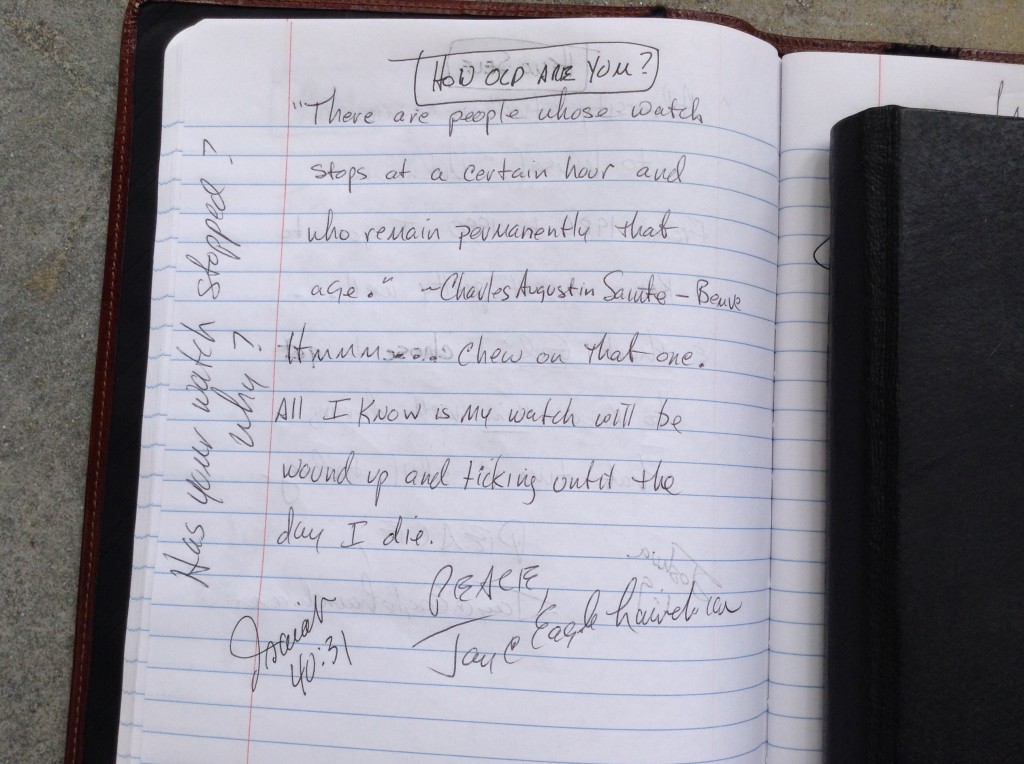 HOW OLD ARE YOU?
"There are people whose watch
stops at a certain hour and
who remain permanently that
age." ~Charles Augustin Sainte-Beuve
Hmmm.... Chew on that one.
All I know is my watch will be
wound up and ticking until the
day I die.
PEACE,
Jay C
Isaiah
40:31
Has your watch stopped?
Why?